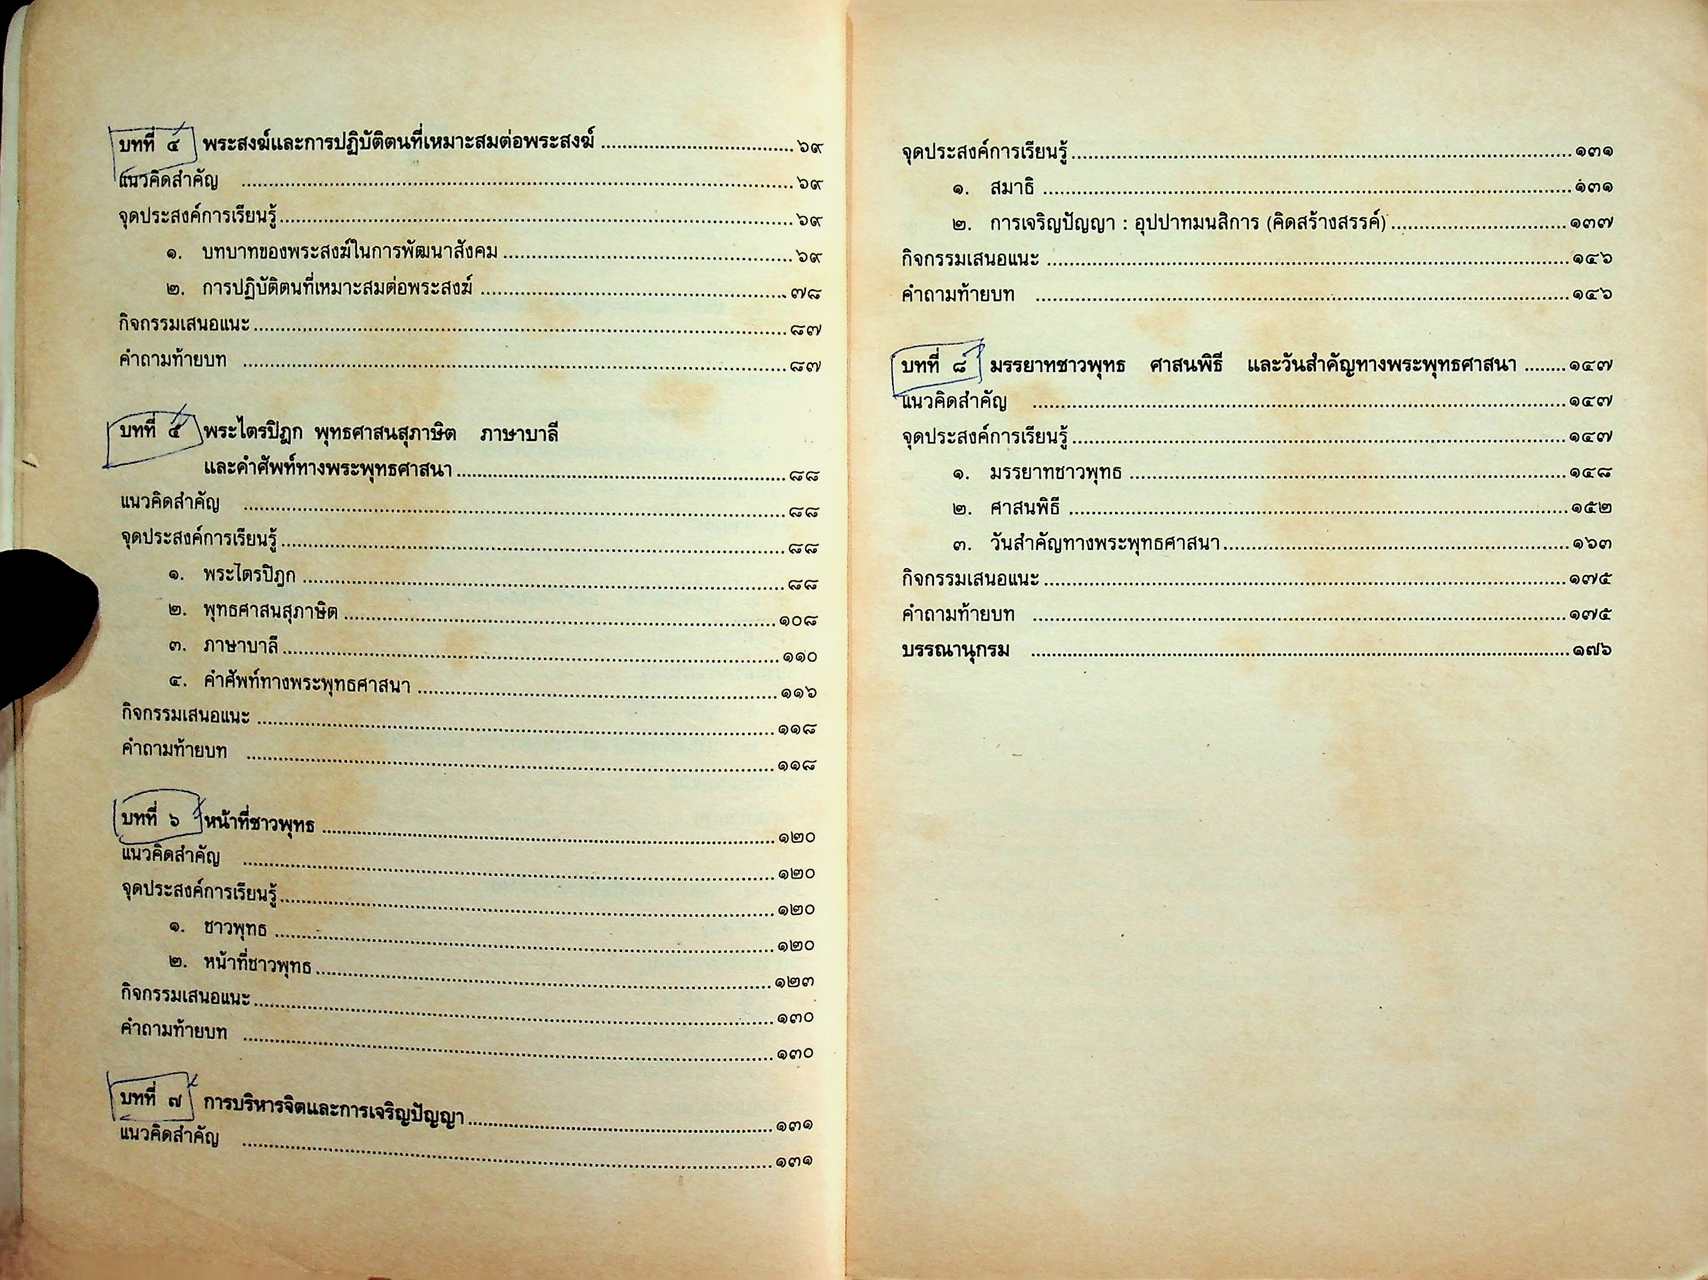 บทที่ ๔ พระสงฆ์และการปฏิบัติตนที่เหมาะสมต่อพระสงฆ์ ..... ๖๙
แนวคิดสำคัญ ..... ๖๙
จุดประสงค์การเรียนรู้ ..... ๖๙
๑. บทบาทของพระสงฆ์ในการพัฒนาสังคม ..... ๖๙
๒. การปฏิบัติตนที่เหมาะสมต่อพระสงฆ์ ..... ๗๘
กิจกรรมเสนอแนะ ..... ๘๗
คำถามท้ายบท ..... ๘๗
บทที่ ๕ พระไตรปิฎก พุทธศาสนสุภาษิต ภาษาบาลี
และคำศัพท์ทางพระพุทธศาสนา ..... ๘๘
แนวคิดสำคัญ ..... ๘๘
จุดประสงค์การเรียนรู้ ..... ๘๘
๑. พระไตรปิฎก ..... ๘๘
๒. พุทธศาสนสุภาษิต ..... ๑๐๘
๓. ภาษาบาลี ..... ๑๑๐
๔. คำศัพท์ทางพระพุทธศาสนา ..... ๑๑๖
กิจกรรมเสนอแนะ ..... ๑๑๘
คำถามท้ายบท ..... ๑๑๘
บทที่ ๖ หน้าที่ชาวพุทธ ..... ๑๒๐
แนวคิดสำคัญ ..... ๑๒๐
จุดประสงค์การเรียนรู้ ..... ๑๒๐
๑. ชาวพุทธ ..... ๑๒๐
๒. หน้าที่ชาวพุทธ ..... ๑๒๓
กิจกรรมเสนอแนะ ..... ๑๓๐
คำถามท้ายบท ..... ๑๓๐
บทที่ ๗ การบริหารจิตและการเจริญปัญญา ..... ๑๓๑
แนวคิดสำคัญ ..... ๑๓๑
จุดประสงค์การเรียนรู้ ..... ๑๓๑
๑. สมาธิ ..... ๑๓๑
๒. การเจริญปัญญา : อุปปาทมนสิการ (คิดสร้างสรรค์) ..... ๑๓๗
กิจกรรมเสนอแนะ ..... ๑๔๖
คำถามท้ายบท ..... ๑๔๖
บทที่ ๘ มรรยาทชาวพุทธ ศาสนพิธี และวันสำคัญทางพระพุทธศาสนา ..... ๑๔๗
แนวคิดสำคัญ ..... ๑๔๗
จุดประสงค์การเรียนรู้ ..... ๑๔๗
๑. มรรยาทชาวพุทธ ..... ๑๔๘
๒. ศาสนพิธี ..... ๑๕๒
๓. วันสำคัญทางพระพุทธศาสนา ..... ๑๖๓
กิจกรรมเสนอแนะ ..... ๑๗๕
คำถามท้ายบท ..... ๑๗๕
บรรณานุกรม ..... ๑๗๖